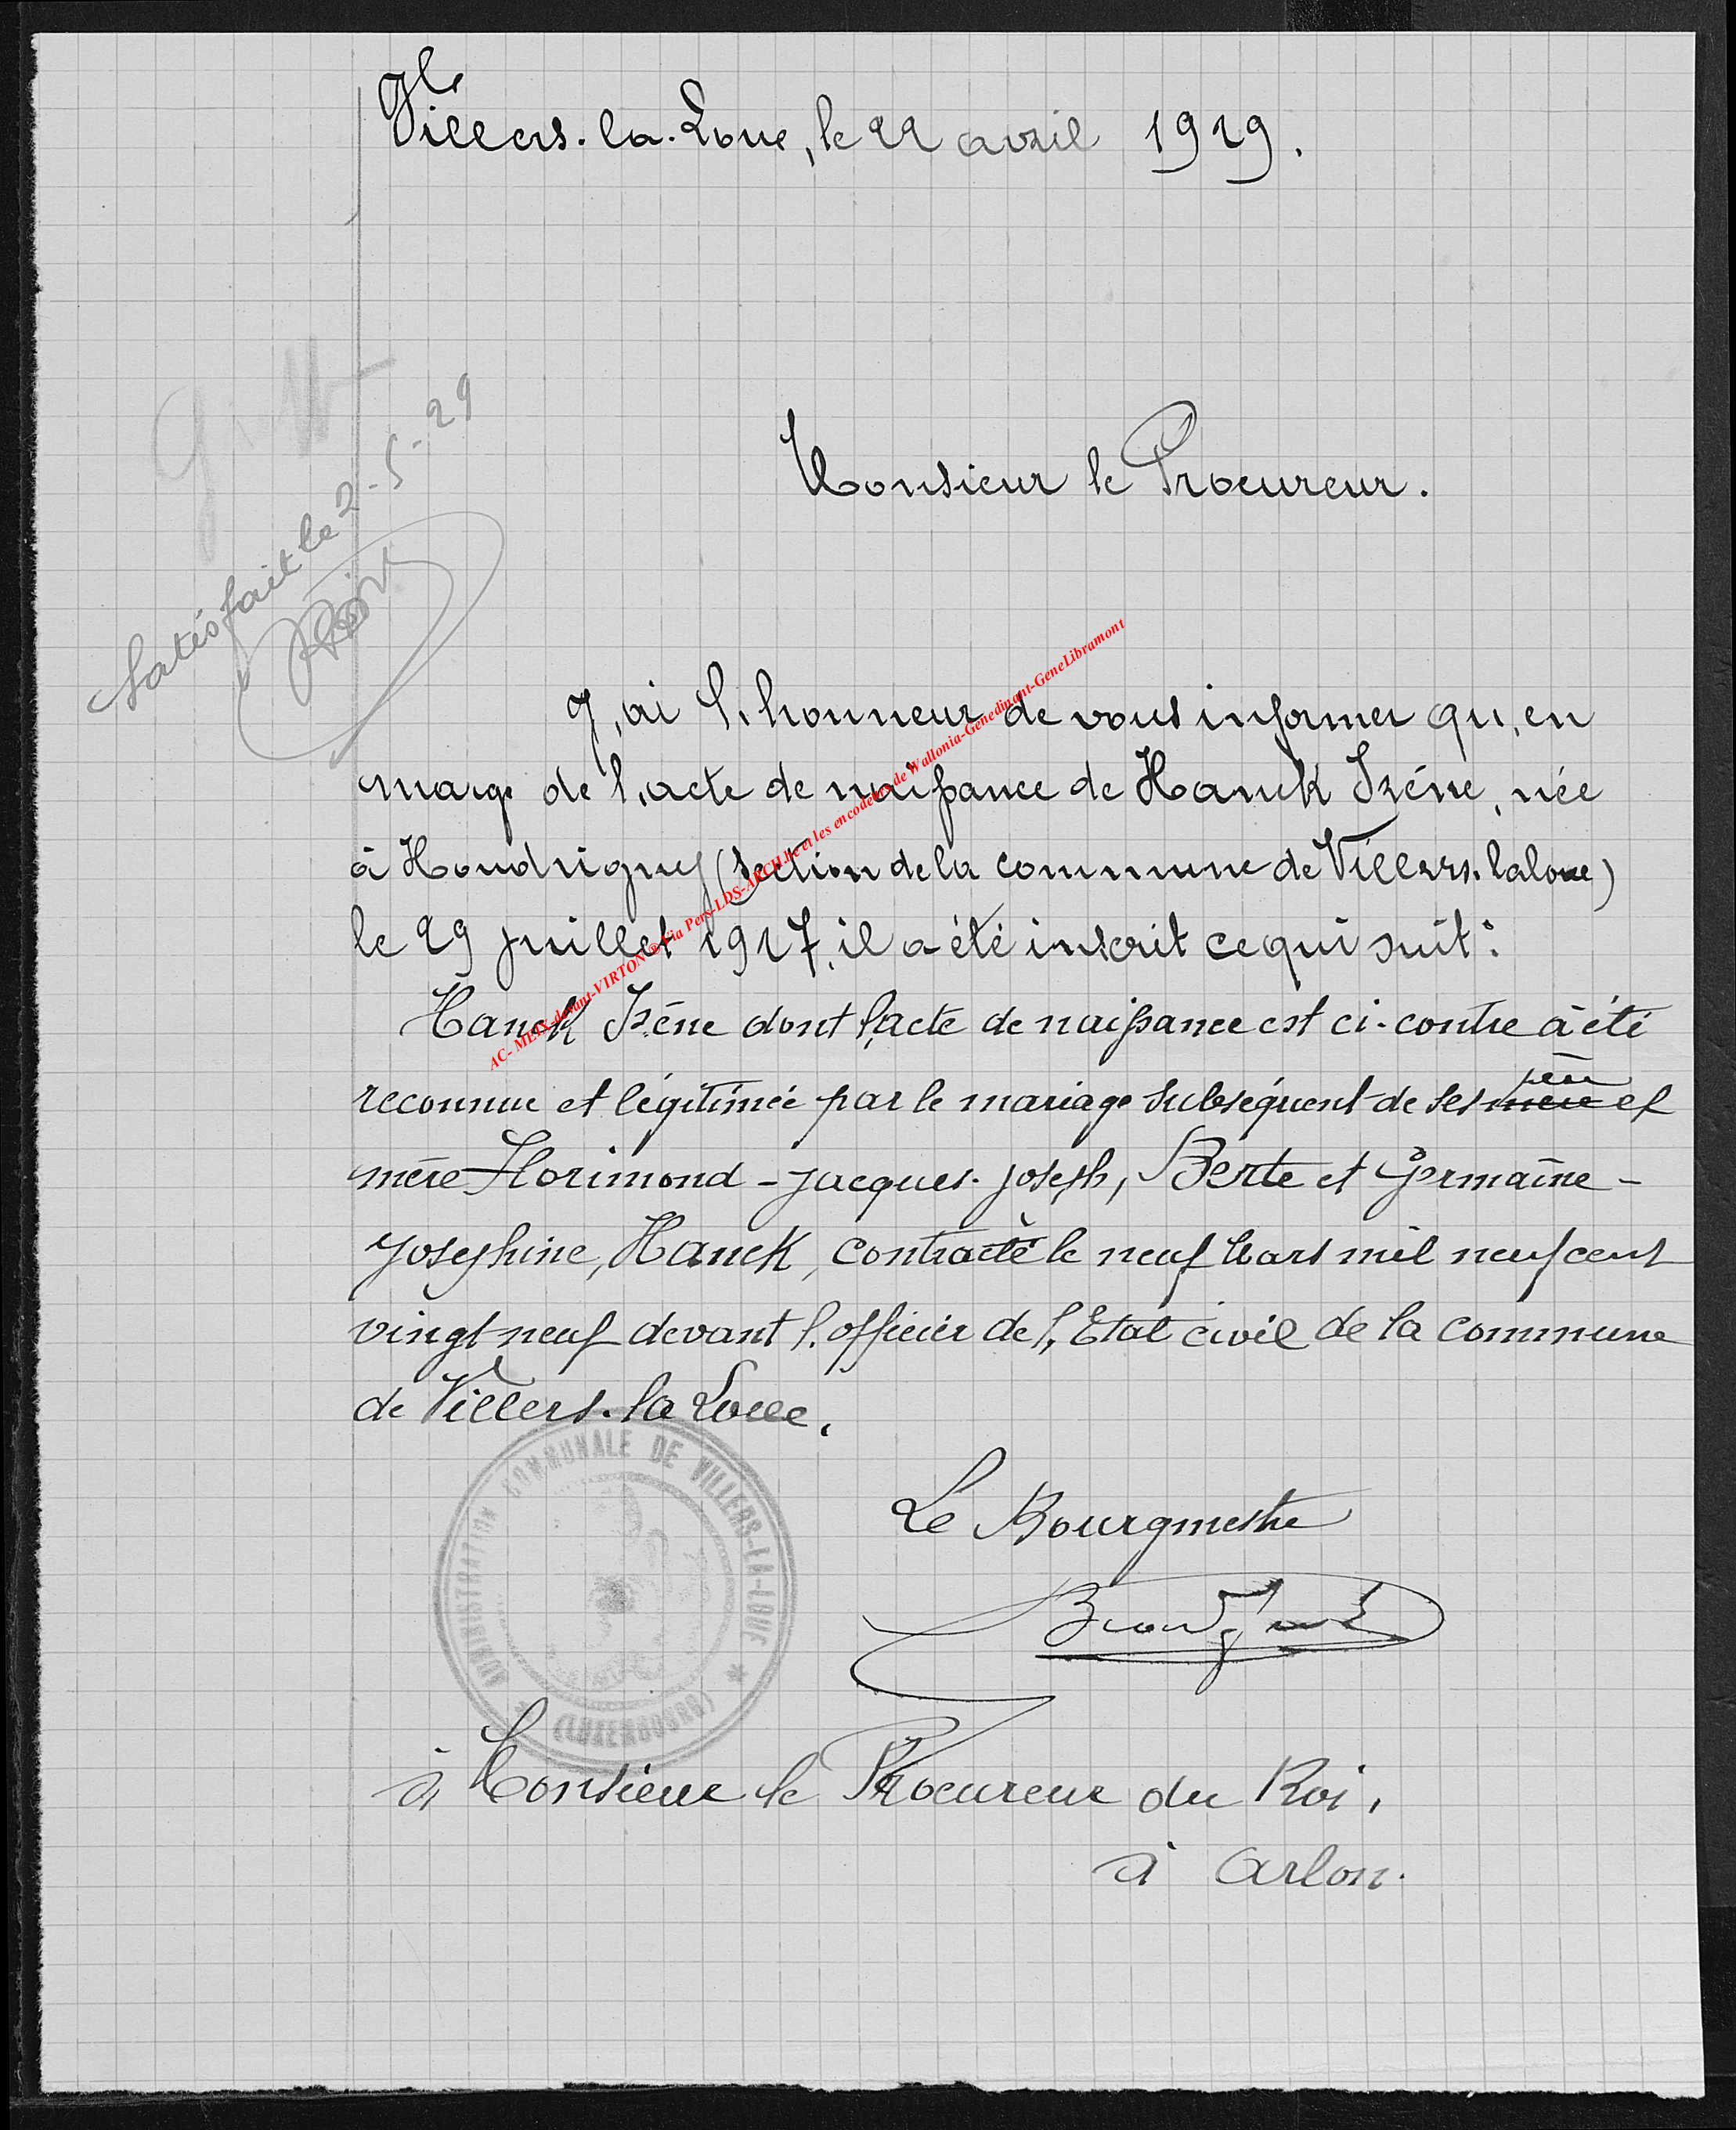 Villers-la-Loue, le 22 avril 1929.
Satisfait le 2-5-29
Monsieur le Procureur.
J'ai l'honneur de vous informer qu'en
marge de l'acte de naissance de Hanck Irène, née
à Houdrigny (section de la commune de Villers-la loue)
le 29 juillet 1927, il a été inscrit ce qui suit :
Hanck Irène dont l'acte de naissance est ci-contre à été
père
reconnue et légitimée par le mariage subséquent de ses mère et
mère Florimond-Jacques-Joseph, Berte et Germaine-
Joséphine, Hanck, contracté le neuf Mars mil neuf cent
vingt neuf devant l'officier de l'Etat civil de la commune
de Villers-la Loue.
ADMINISTRATION COMMUNALE DE VILLERS-LA-LOUE
(LUXEMBOURG)
Le Bourgmestre
à Monsieur le Procureur du Roi,
à Arlon.
AC- MEIX-devant-VIRTON © via Pers-LDS-ARCH.be et les encodeurs de Wallonia-Genedinant-GeneLibramont